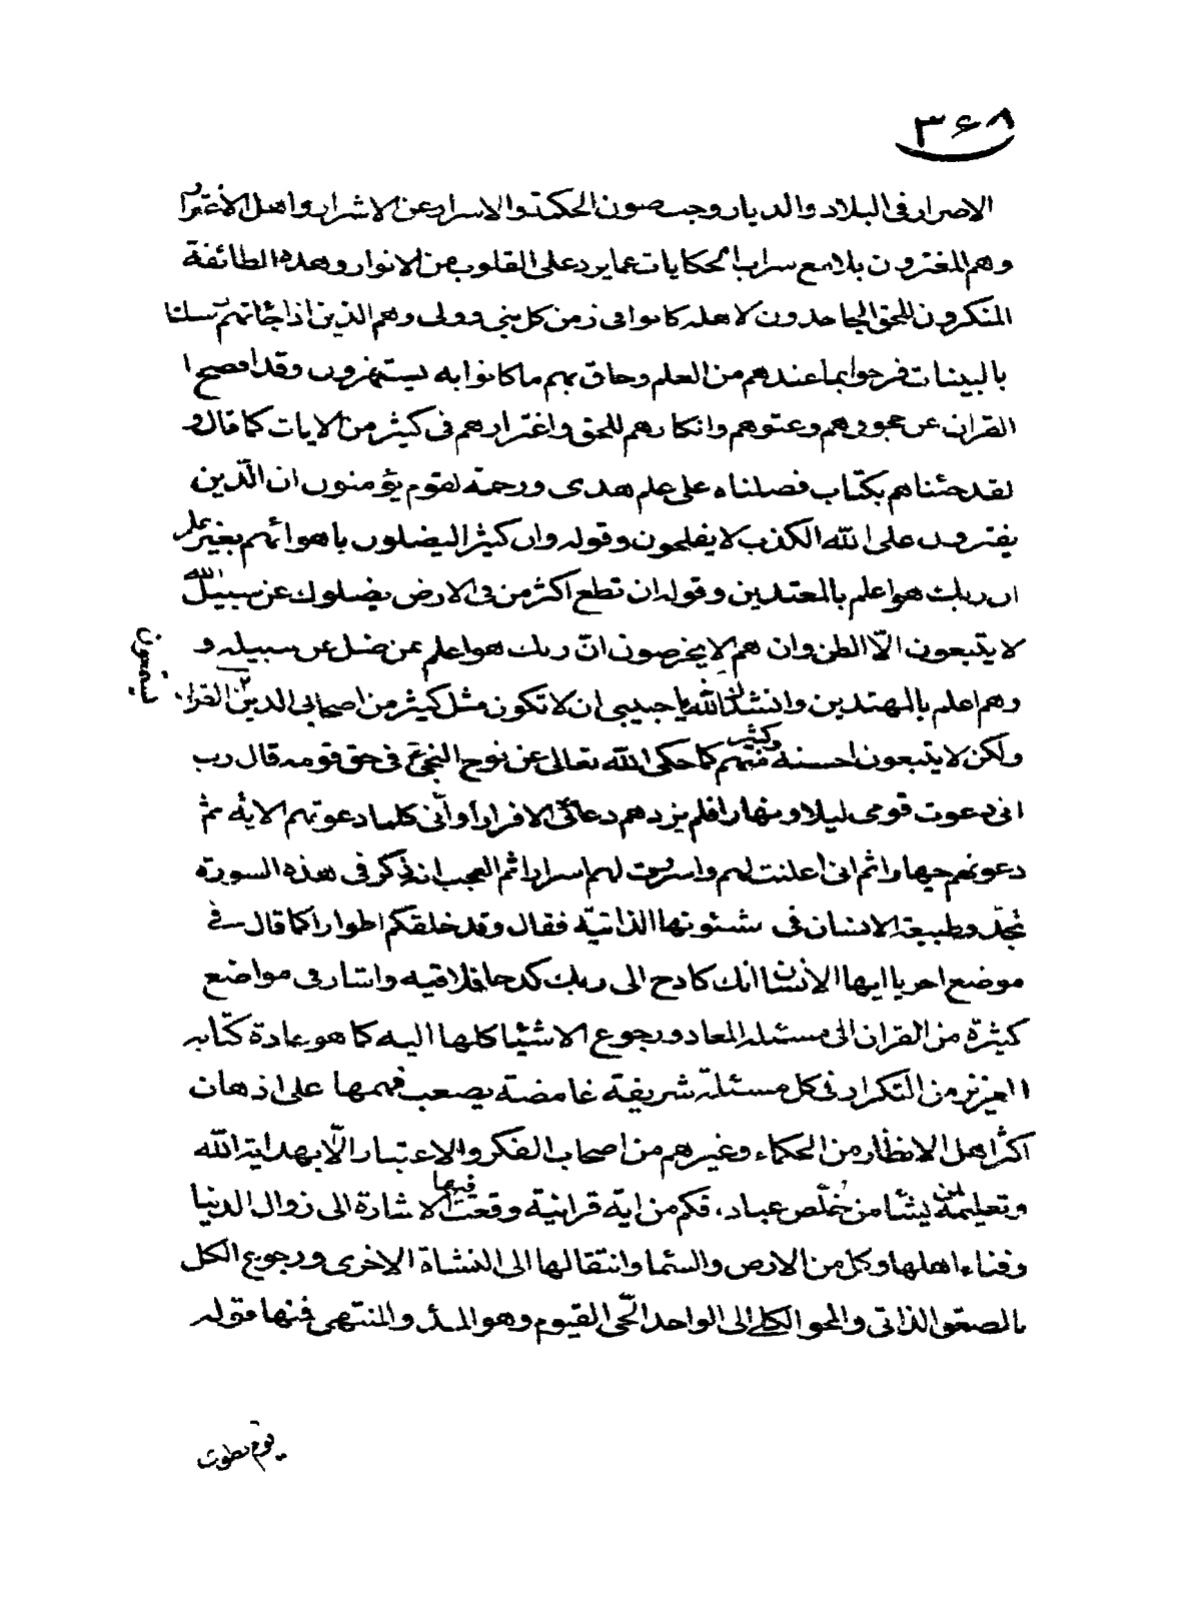 ٣٦٨
الاصرار فى البلاد والديار وجب صون الحكمة والاسرار عن الاشرار واهل الاغترار
وهم المغترون بلامع سراب الحكايات عما يرد على القلوب من الانوار وهذه الطائفة
المنكرون للحق الجاحدون لاهله كانوا فى زمن كل نبى وولى وهم الذين اذا جائتهم رسلنا
بالبينات فرحوا بما عندهم من العلم وحاق بهم ما كانوا به يستهزون وقد افصح ا
القران عن جحودهم وعتوهم وانكارهم للحق واغترارهم فى كثير من الايات كما قال و
لقد جئناهم بكتاب فصلناه على علم هدى ورحمة لقوم يؤمنون ان الّذين
يفترون على الله الكذب لا يفلحون وقوله وان كثيرا ليضلون باهوائهم بغير علم
ان ربك هو اعلم بالمعتدين وقوله ان تطع اكثر من فى الارض يضلوك عن سبيل الله
لا يتبعون الّا الظن وان هم الا يخرصون انّ ربك هو اعلم عمن ضل عن سبيله و
وهو اعلم بالمهتدين وانشدك الله يا حبيبى ان لا تكون مثل كثير من اصحابى الذين ٢ القران
يسمعون
ولكن لا يتبعون احسنه وكثير منهم كما حكى الله تعالى عن نوح النبى ع فى حق قومه قال رب
انى دعوت قومى ليلا ونهارا فلم يزدهم دعائى الا فرارا وانّى كلما دعوتهم الاية ثم
دعوتهم جهارا ثم انى اعلنت لهم واسررت لهم اسرارا ثم العجب انه ذكر فى هذه السورة
تجدّد طبيعة الانسان فى شئونها الذاتيّة فقال وقد خلقكم اطوارا كما قال فى
موضع اخر يا ايها الأنسان انك كادح الى ربك كدحا فملاقيه واشار فى مواضع
كثيرة من القران الى مسئلة المعاد ورجوع الاشيا كلها اليه كما هو عادة كتابه
العزيز من التكرار فى كل مسئلة شريفة غامضة يصعب فهمها على اذهان
اكثر اهل الانظار من الحكماء وغيرهم من اصحاب الفكر والاعتبار الّا بهداية الله
وتعليمه لمن يشا من خلّص عباده فكم من اية قرانية وقعت فيها الاشارة الى زوال الدنيا
وفناء اهلها وكل من الارض والسّما وانتقالها الى النشاة الاخرى ورجوع الكل
بالصعق الذاتى والمحو الكلى الى الواحد الحّى القيوم وهو المبدأ والمنتهى فمنها قوله
يوم نطوى